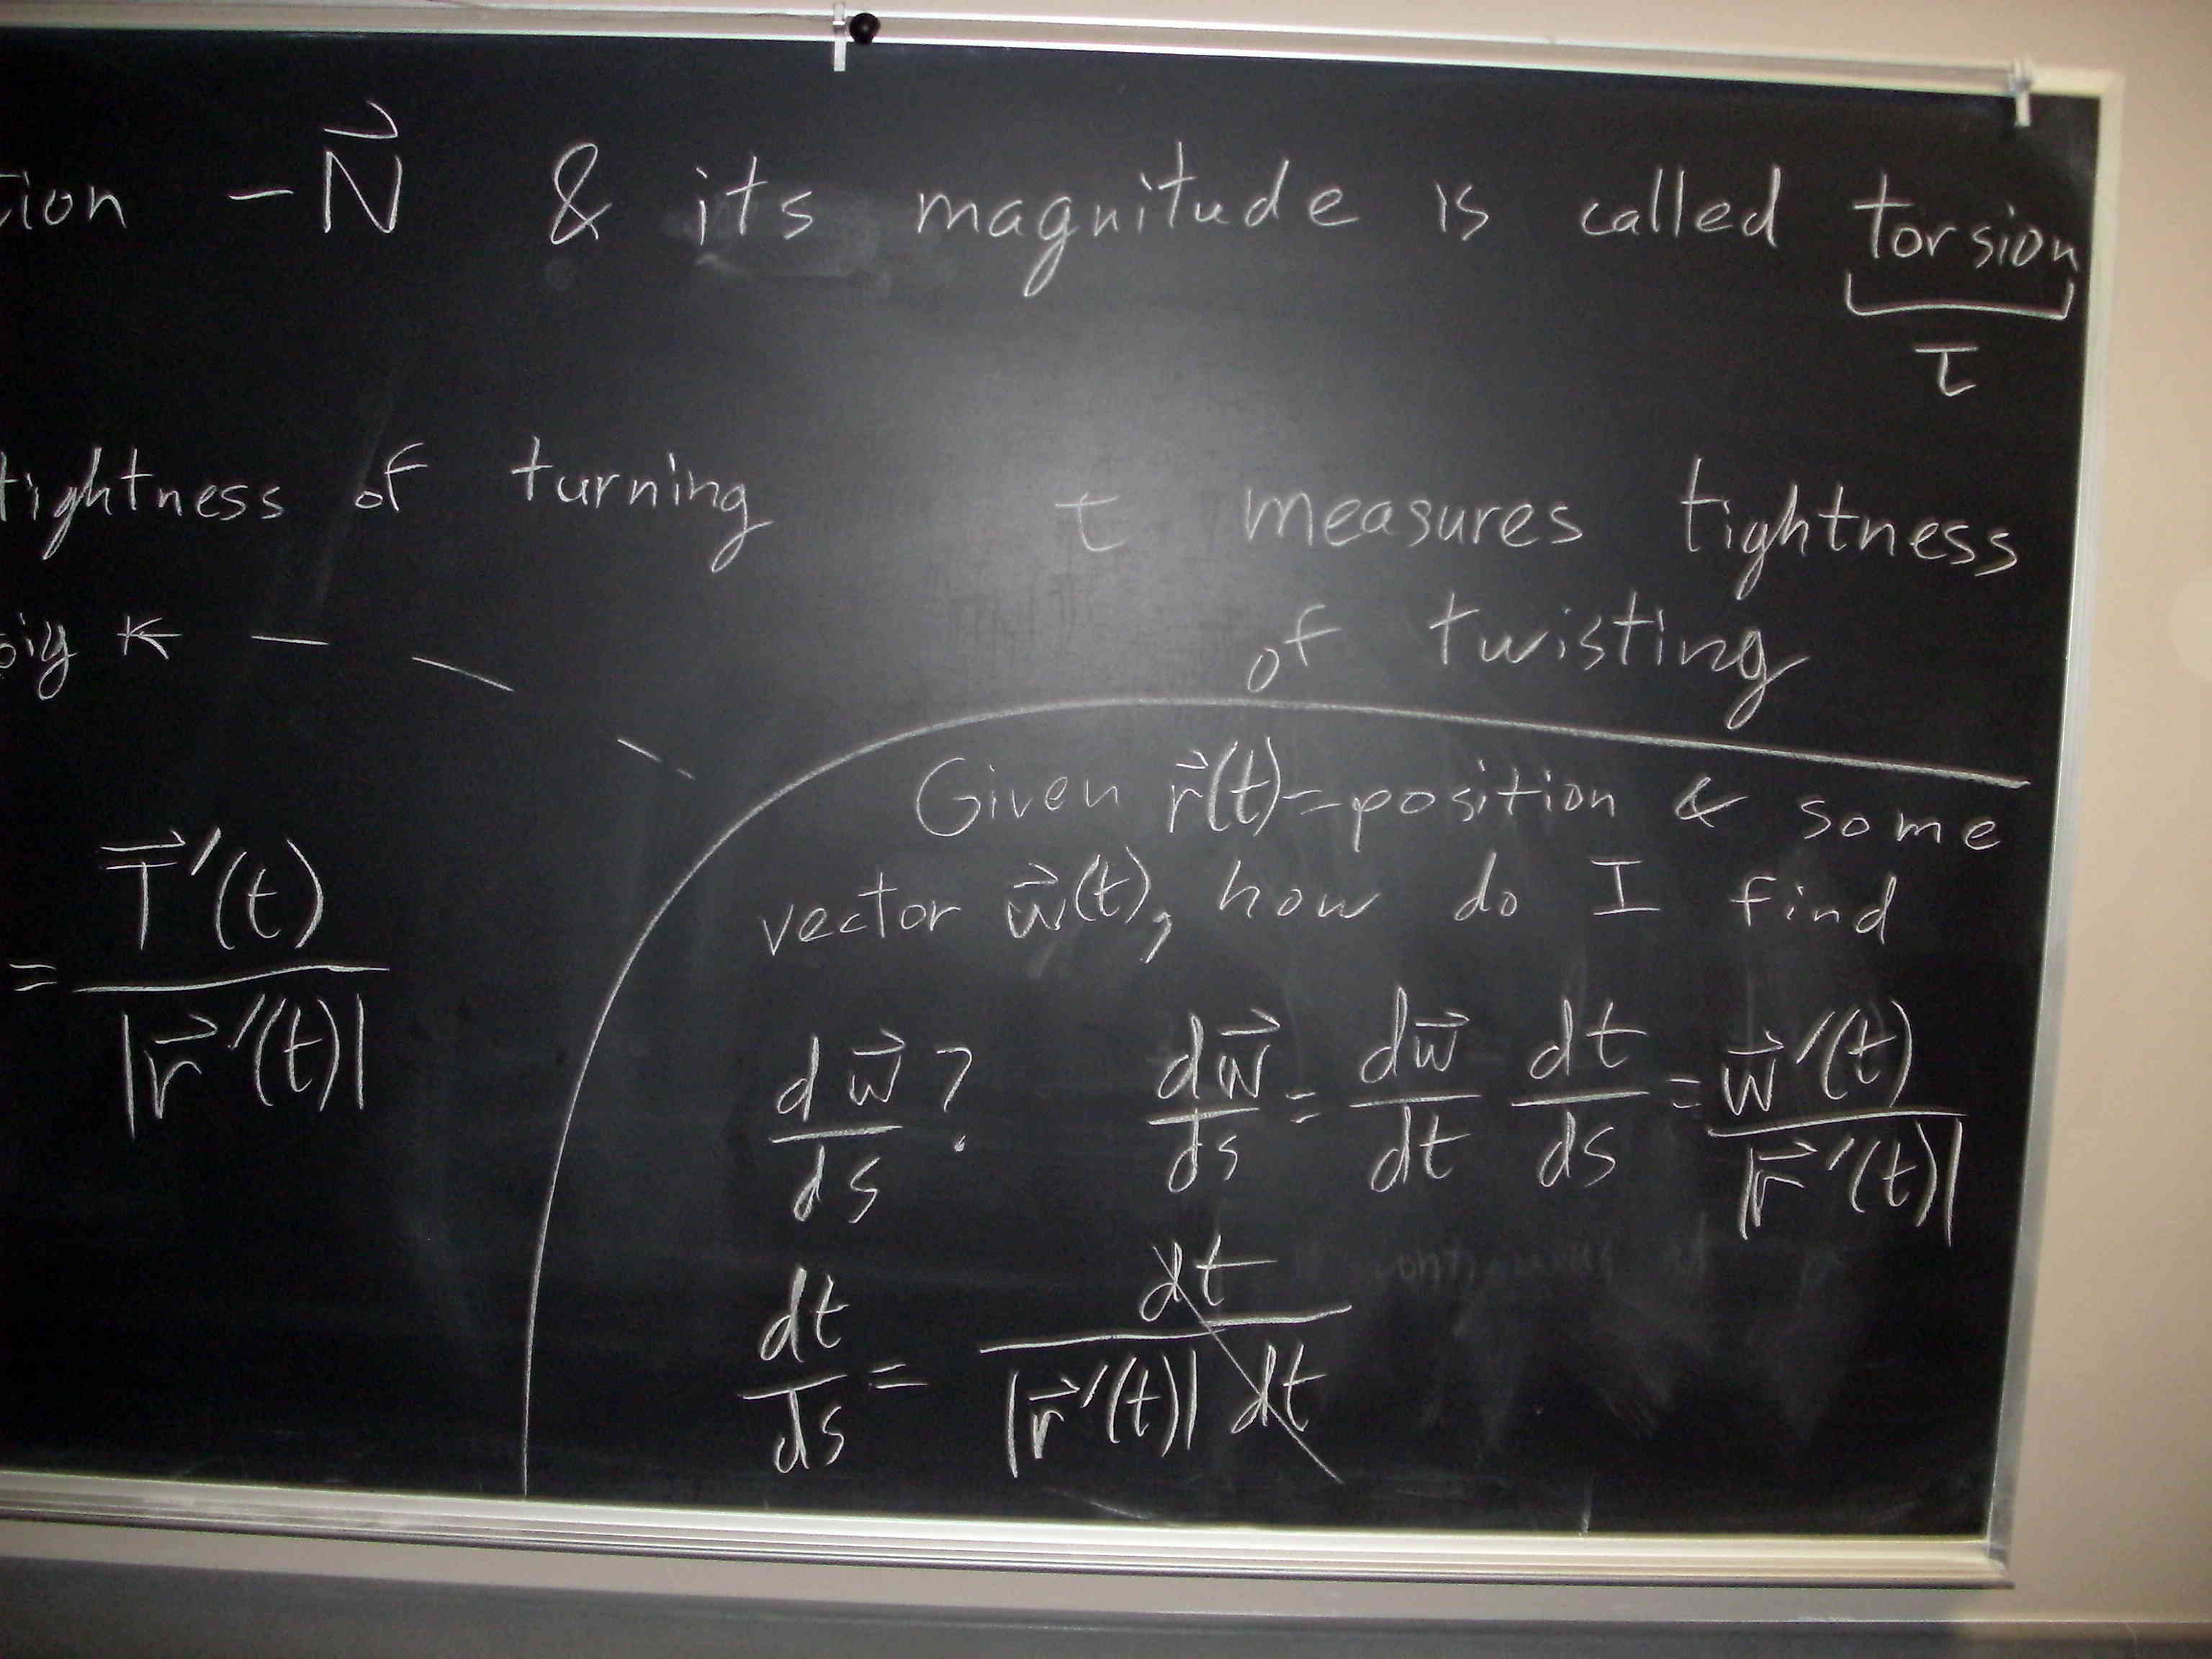 tion -N⃗ & its magnitude is called torsion
τ
tightness of turning
big κ
τ measures tightness
of twisting
= T⃗'(t) / |r⃗'(t)|
Given r⃗(t)=position & some
vector w⃗(t), how do I find
dw⃗/ds? dw⃗/ds = dw⃗/dt dt/ds = w⃗'(t)/|r⃗'(t)|
dt/ds = dt / |r⃗'(t)| dt